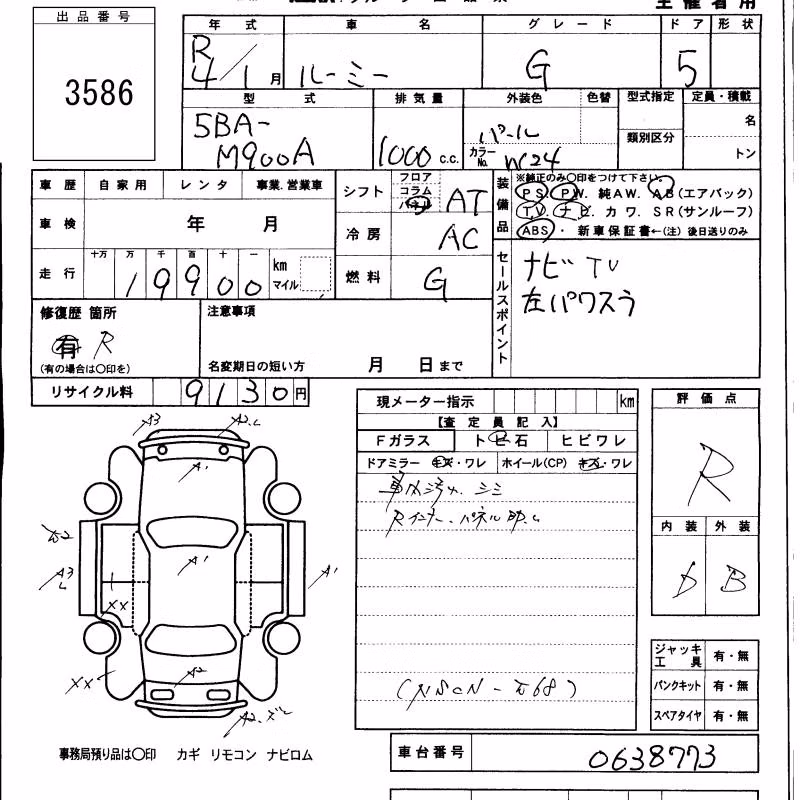 主催者用
出品番号
3586
年式 車名 グレード ドア 形状
R4/1月 ルーミー G 5
型式 排気量 外装色 色替 型式指定 定員・積載
5BA-
M900A
1000 c.c.
パール
カラーNo. W24
類別区分
名
トン
車歴 自家用 レンタ 事業.営業車
車検 年 月
走行 十万 万 千 百 十 一
19900 km マイル
シフト フロア コラム パネル AT
冷房 AC
燃料 G
装備品
※純正のみ〇印をつけて下さい。
PS. PW. 純AW. AB(エアバック)
TV. ナビ. カワ. SR(サンルーフ)
ABS・ 新車保証書←(注) 後日送りのみ
セールスポイント
ナビ TV
左パワスラ
修復歴 箇所
有 R
(有の場合は〇印を)
注意事項
名変期日の短い方 月 日まで
リサイクル料 9130円
現メーター指示 km
【査定員記入】
Fガラス ト ビ 石 ヒビワレ
ドアミラー キズ・ワレ ホイール(CP) キズ・ワレ
車内汚れ シミ
評価点
R
内装 外装
D B
A3
A2
A1
A1
A3
A1
XX
XX
A2
A2
ジャッキ工具 有・無
パンクキット 有・無
スペアタイヤ 有・無
事務局預り品は〇印 カギ リモコン ナビロム
車台番号 0638773